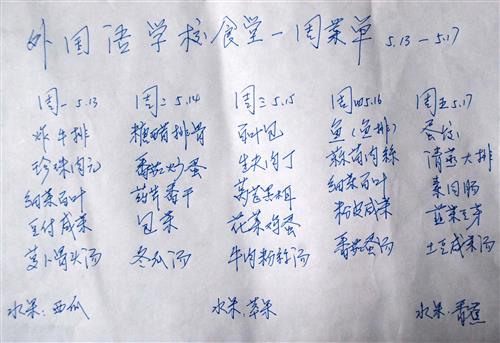 外国语学校食堂一周菜单 5.13-5.17
周一5.13 周二5.14 周三5.15 周四5.16 周五5.17
炸牛排 糖醋排骨 百叶包 鱼(鱼排)
珍珠肉元 番茄炒蛋 生夫肉丁 蒜苗肉絲 清蒸大排
细菜百叶 芹干 莴苣木耳 细菜百叶 素肉肠
豆付咸菜 包菜 花菜鸡蛋 粉皮咸菜 韭菜豆芽
萝卜骨头汤 冬瓜汤 牛肉粉丝汤 番茄蛋汤 土豆咸菜汤
水果:西瓜 水果:苹果 水果:香蕉